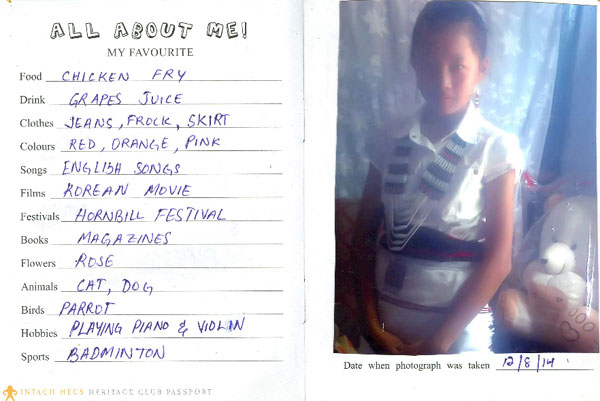 ALL ABOUT ME!
MY FAVOURITE
Food CHICKEN FRY
Drink GRAPES JUICE
Clothes JEANS, FROCK, SKIRT
Colours RED, ORANGE, PINK
Songs ENGLISH SONGS
Films KOREAN MOVIE
Festivals HORNBILL FESTIVAL
Books MAGAZINES
Flowers ROSE
Animals CAT, DOG
Birds PARROT
Hobbies PLAYING PIANO & VIOLIN
Sports BADMINTON
INTACH HECS HERITAGE CLUB PASSPORT
Date when photograph was taken 12/8/14